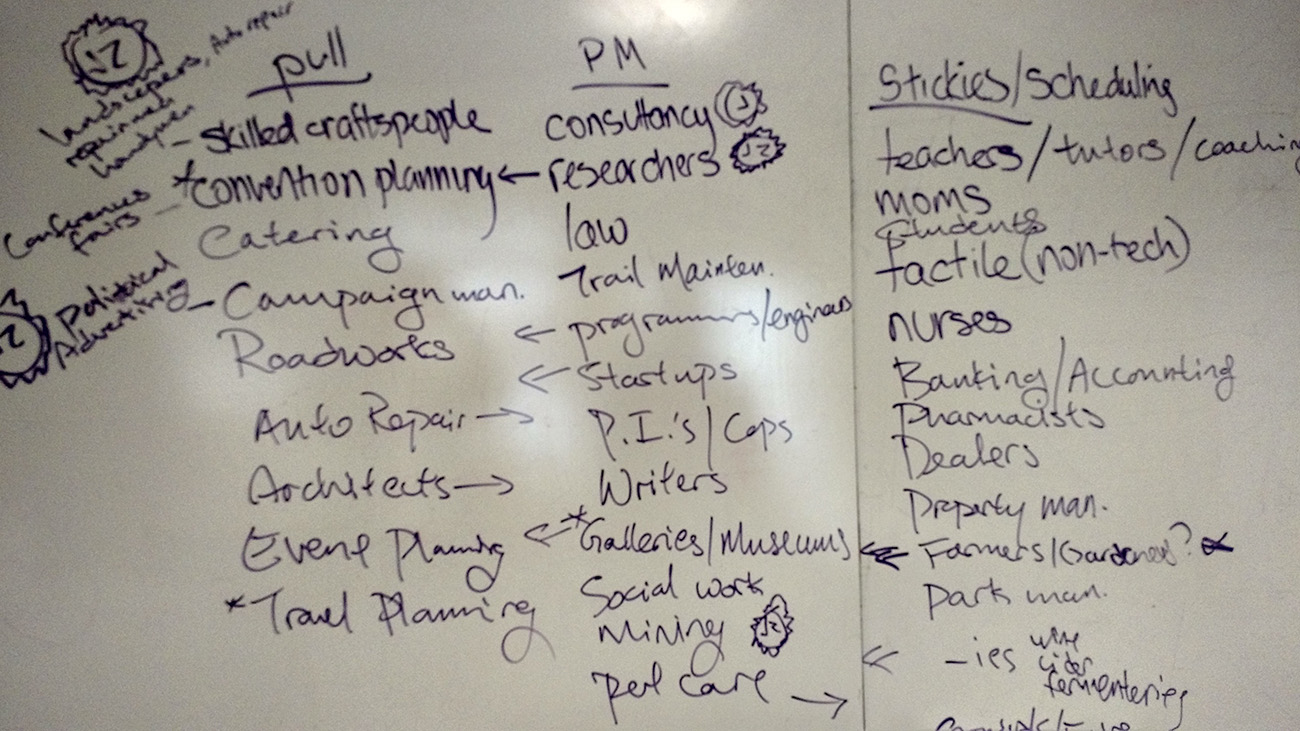 landscapers, Auto repair
repairmen
handymen
pull
- skilled craftspeople
Conferences
fairs
- *convention planning
Catering
political
Advertising
- Campaign man.
Roadworks
Auto Repair →
Architects →
Event Planning
*Travel Planning
PM
consultancy
← researchers
law
Trail Mainten.
← programmers/engineers
← Startups
P.I.'s/Cops
Writers
← *Galleries/Museums
Social work
Mining
pet care →
Stickies/Scheduling
teachers/tutors/coaching
moms
students
tactile (non-tech)
nurses
Banking/Accounting
Pharmacists
Dealers
Property man.
← Farmers/Gardeners?
Park man.
← -ies wine
cider
fermenteries